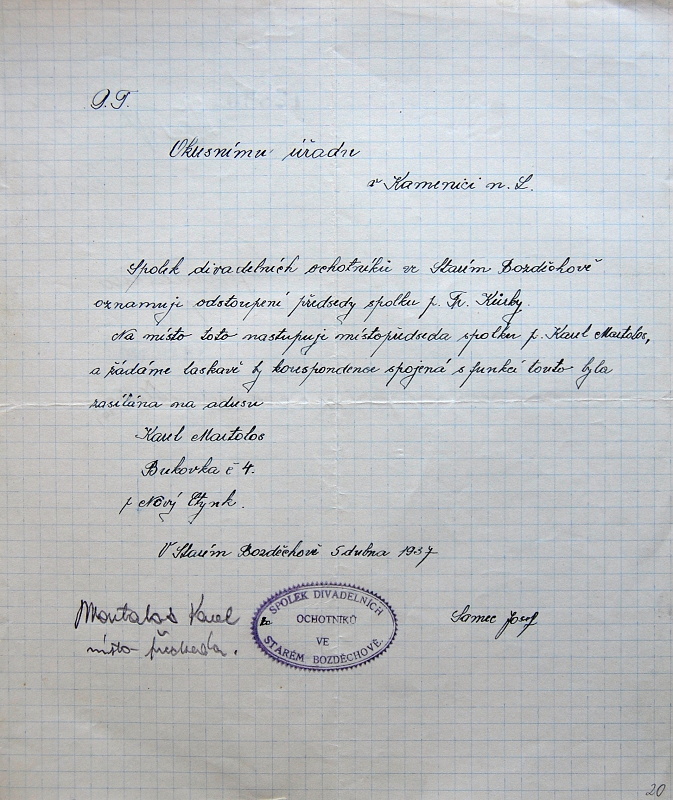 P.T.
Okresnímu úřadu
v Kamenici n. L.
Spolek divadelních ochotníků ve Starém Bozděchově
oznamuji odstoupení předsedy spolku p. Fr. Kürky.
Na místo toto nastupuje místopředseda spolku p. Karel Martolos,
a žádáme laskavě by korespondence spojená s funkcí touto byla
zasílána na adresu
Karel Martolos
Bukovka č 4.
p Nový Etynk.
V Starém Bozděchově 5 dubna 1937
Martolos Karel
místo předseda.
Za
SPOLEK DIVADELNÍCH
OCHOTNÍKŮ
VE
STARÉM BOZDĚCHOVĚ.
Samec Josef
20